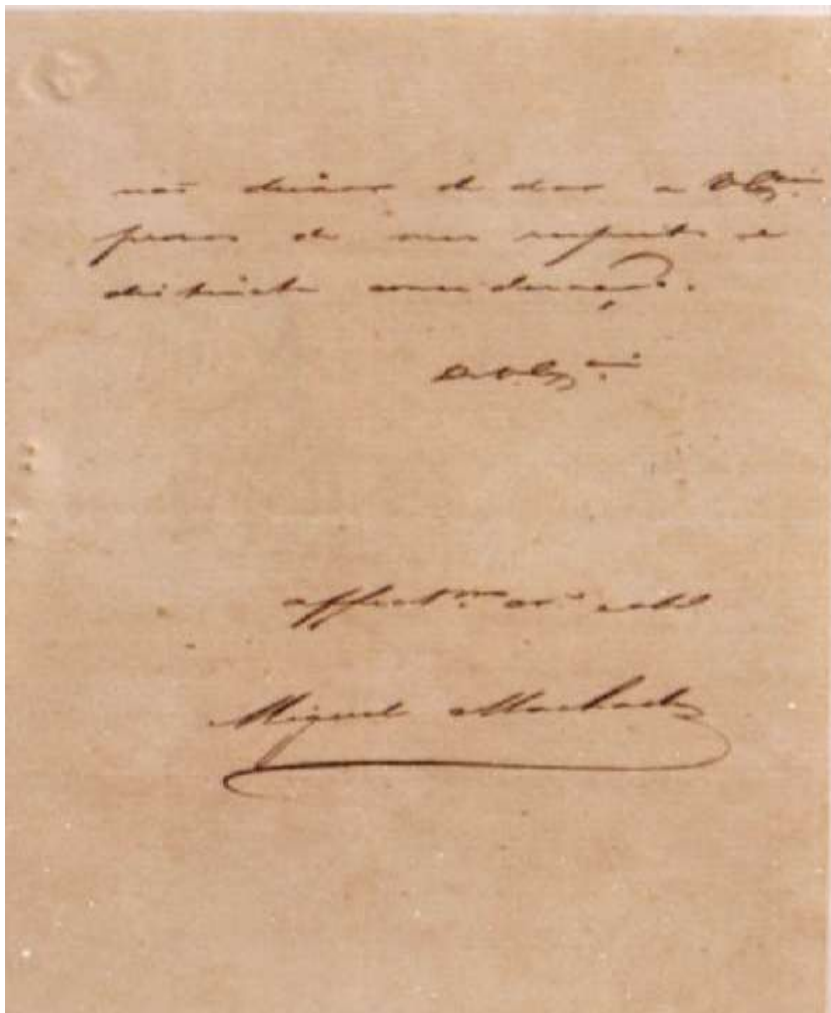 não deixar de dar a V. Ex.cia
provas de meu respeito e
distincta consideração.
De V. Ex.cia
affect.mo am.o
Miguel Machado